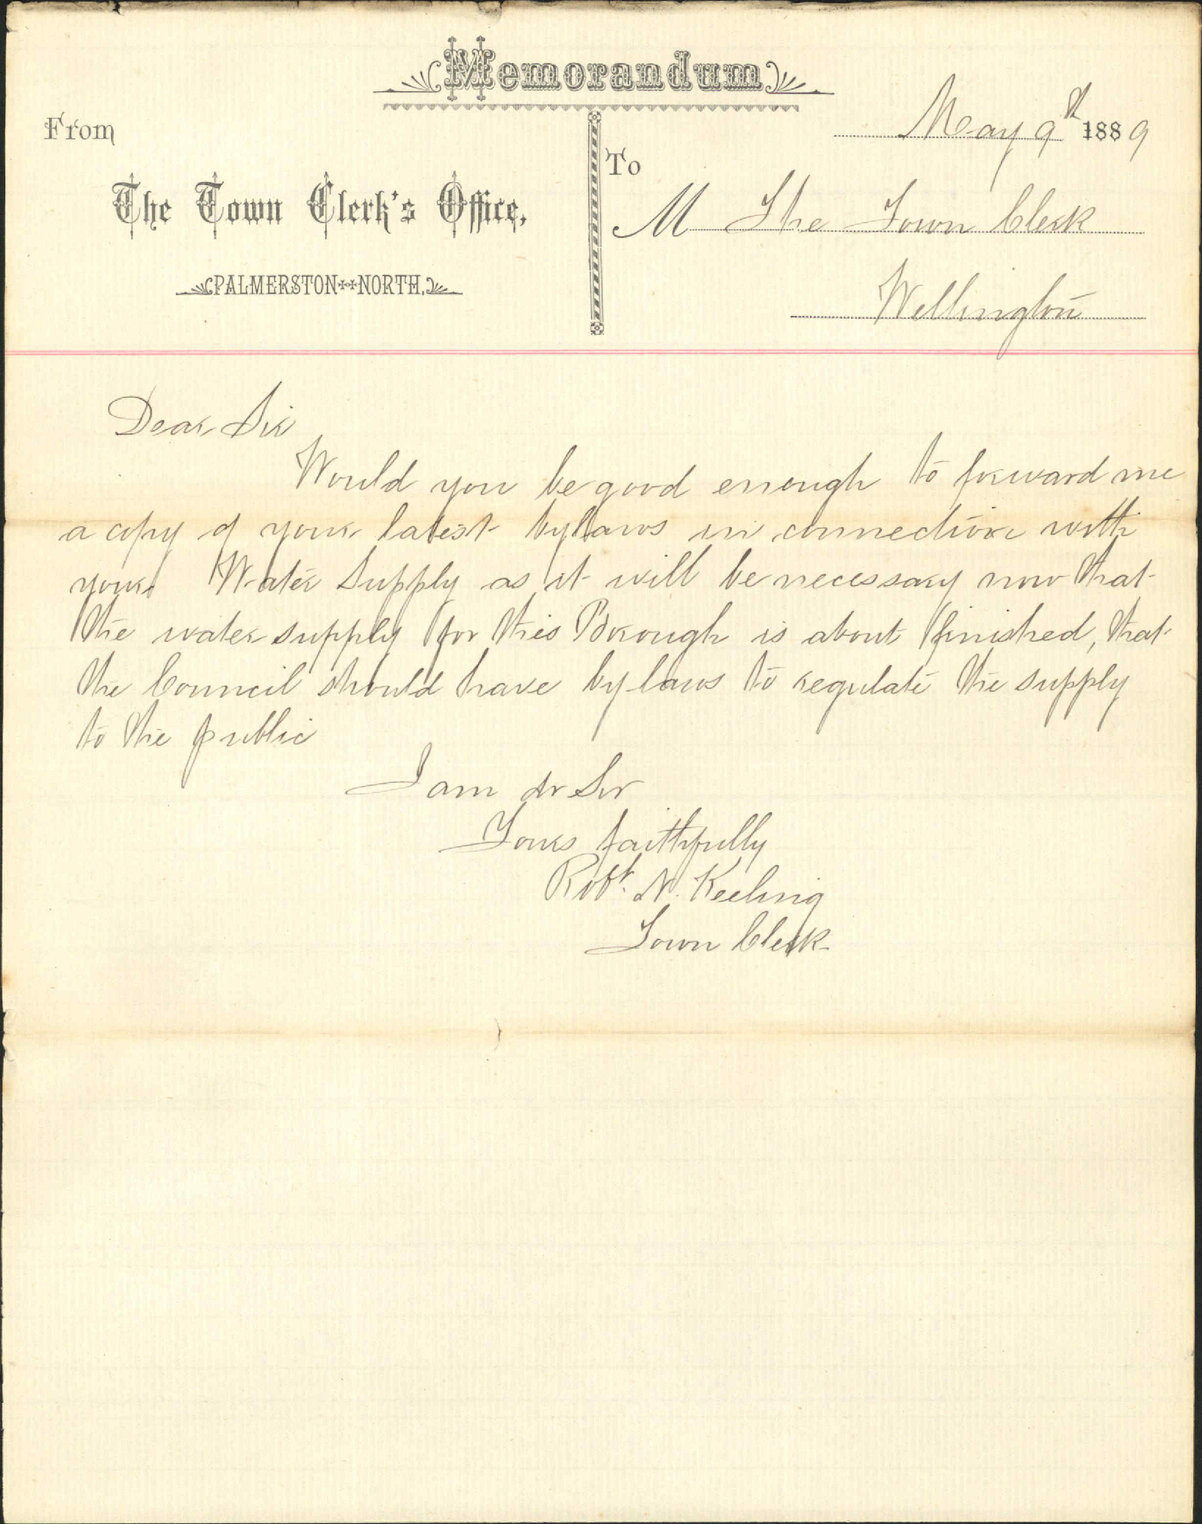 Memorandum
From
May 9th 1889
To
The Town Clerk's Office,
M The Town Clerk
PALMERSTON NORTH.
Wellington
Dear Sir
Would you be good enough to forward me
a copy of your latest bylaws in connection with
your Water Supply as it will be necessary now that
the water supply for this Borough is about finished, that
the Council should have by-laws to regulate the supply
to the public
I am Dr Sir
Yours faithfully
Robt. N. Keeling
Town Clerk